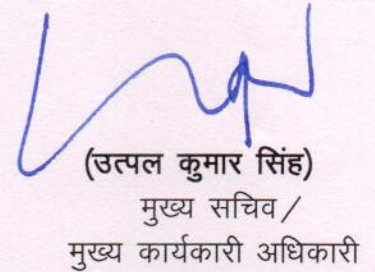 (उत्पल कुमार सिंह)
मुख्य सचिव/
मुख्य कार्यकारी अधिकारी